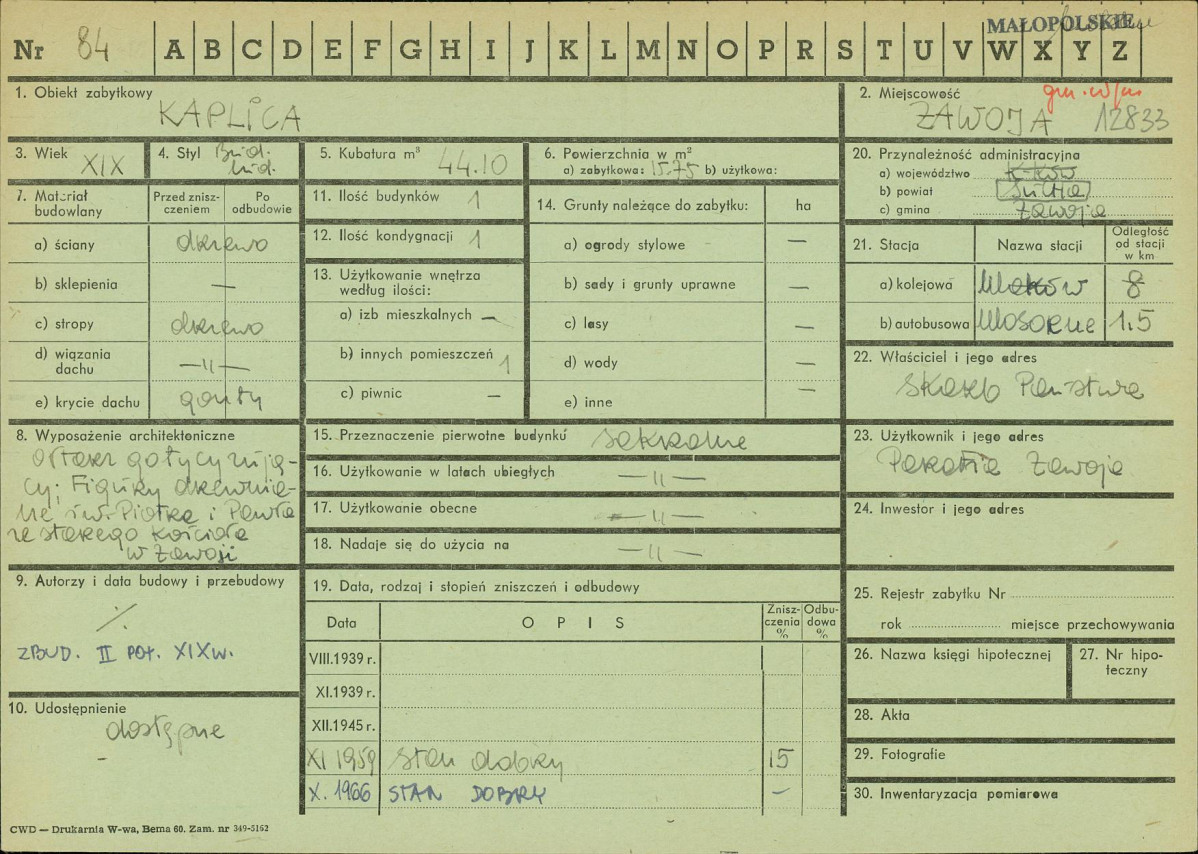 MAŁOPOLSKIE
Nr 84 A B C D E F G H I J K L M N O P R S T U V W X Y Z
1. Obiekt zabytkowy
KAPLICA
2. Miejscowość
ZAWOJA 12833
3. Wiek
XIX
4. Styl
Bud.
lud.
5. Kubatura m³
44.10
6. Powierzchnia w m²
a) zabytkowa: 15.75 b) użytkowa:
20. Przynależność administracyjna
a) województwo K-ków
b) powiat Sucha
c) gmina Zawoja
7. Materiał budowlany
Przed znisz-
czeniem
Po
odbudowie
a) ściany drzewo
b) sklepienia —
c) stropy drzewo
d) wiązania
dachu —„—
e) krycie dachu gonty
11. Ilość budynków 1
12. Ilość kondygnacji 1
13. Użytkowanie wnętrza
według ilości:
a) izb mieszkalnych —
b) innych pomieszczeń 1
c) piwnic —
14. Grunty należące do zabytku: ha
a) ogrody stylowe —
b) sady i grunty uprawne —
c) lasy —
d) wody —
e) inne —
21. Stacja
Nazwa stacji
Odległość
od stacji
w km
a) kolejowa Maków 8
b) autobusowa Mosorne 1.5
22. Właściciel i jego adres
Skarb Państwa
8. Wyposażenie architektoniczne
Ołtarz gotycyzują-
cy; Figurki drewnia-
ne św. Piotra i Pawła
ze starego kościoła
w Zawoji
15. Przeznaczenie pierwotne budynku sakralne
16. Użytkowanie w latach ubiegłych —„—
17. Użytkowanie obecne —„—
18. Nadaje się do użycia na —„—
23. Użytkownik i jego adres
Parafia Zawoja
24. Inwestor i jego adres
9. Autorzy i data budowy i przebudowy
ZBUD. II POŁ. XIX w.
10. Udostępnienie
dostępne
—
19. Data, rodzaj i stopień zniszczeń i odbudowy
Data
OPIS
Znisz-
czenia
%
Odbu-
dowa
%
VIII.1939 r.
XI.1939 r.
XII.1945 r.
XI 1959 Stan dobry 15
X. 1966 STAN DOBRY —
25. Rejestr zabytku Nr
rok miejsce przechowywania
26. Nazwa księgi hipotecznej
27. Nr hipo-
teczny
28. Akta
29. Fotografie
30. Inwentaryzacja pomiarowa
CWD — Drukarnia W-wa, Bema 60. Zam. nr 349-5162